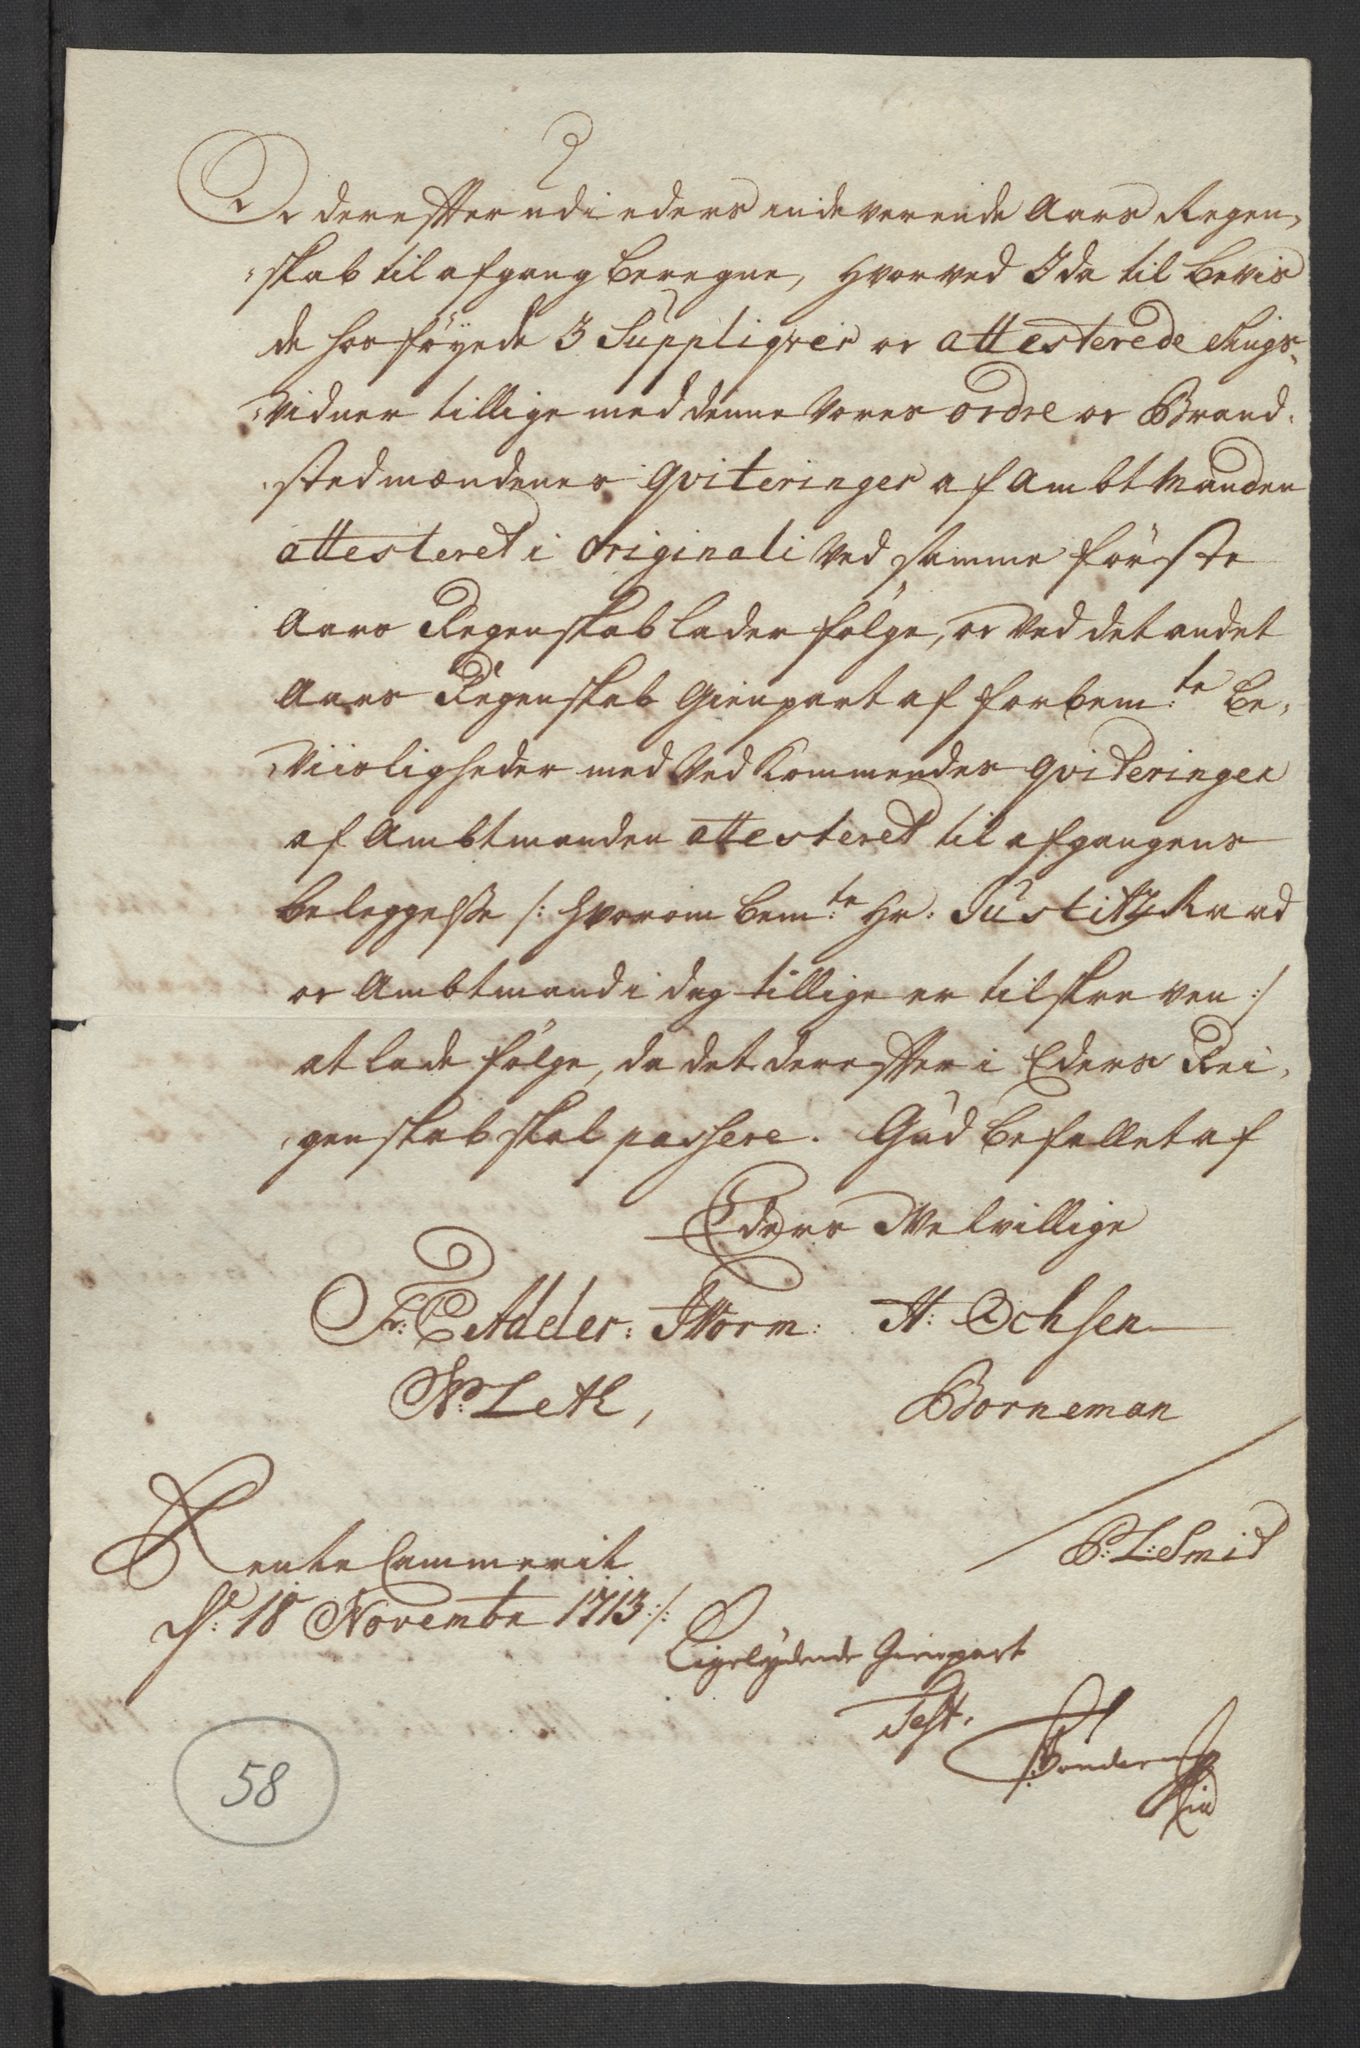 De derefter udi eders indeverende Aars Regen,
skab til afgang beregne, hvorved I da til beviis
de hosföyede 3 Suppliqver oc attesterede tings,
vidner tillige med denne Vores ordre oc Brand,
stedmændenes qviteringer af Ambtmanden
attesteret i originali ved samme förste
Aars Regenskab lader fölge, oc ved det andet
Aars Regenskab Gienpart af forbem:te be,
viisligheder med vedkommendes qviteringer
af Ambtmanden attesteret til afgangens
beleggelsse /: hvorom bem:te Hr: Justitz Raad
oc Ambtmand i dag tillige er tilskreven :/
at lade fölge, da det derefter i Eders Rei,
genskab skal passere. Gud befallet af
Eders Velvillige
Fr: C Adeler: JWorm: H: Ochsen
N: Leth,
Borneman
P: L: Smid
Rente Cammerit
d: 18 Novembr 1713 ./.
Ligelydende Gienpart
Test.
58